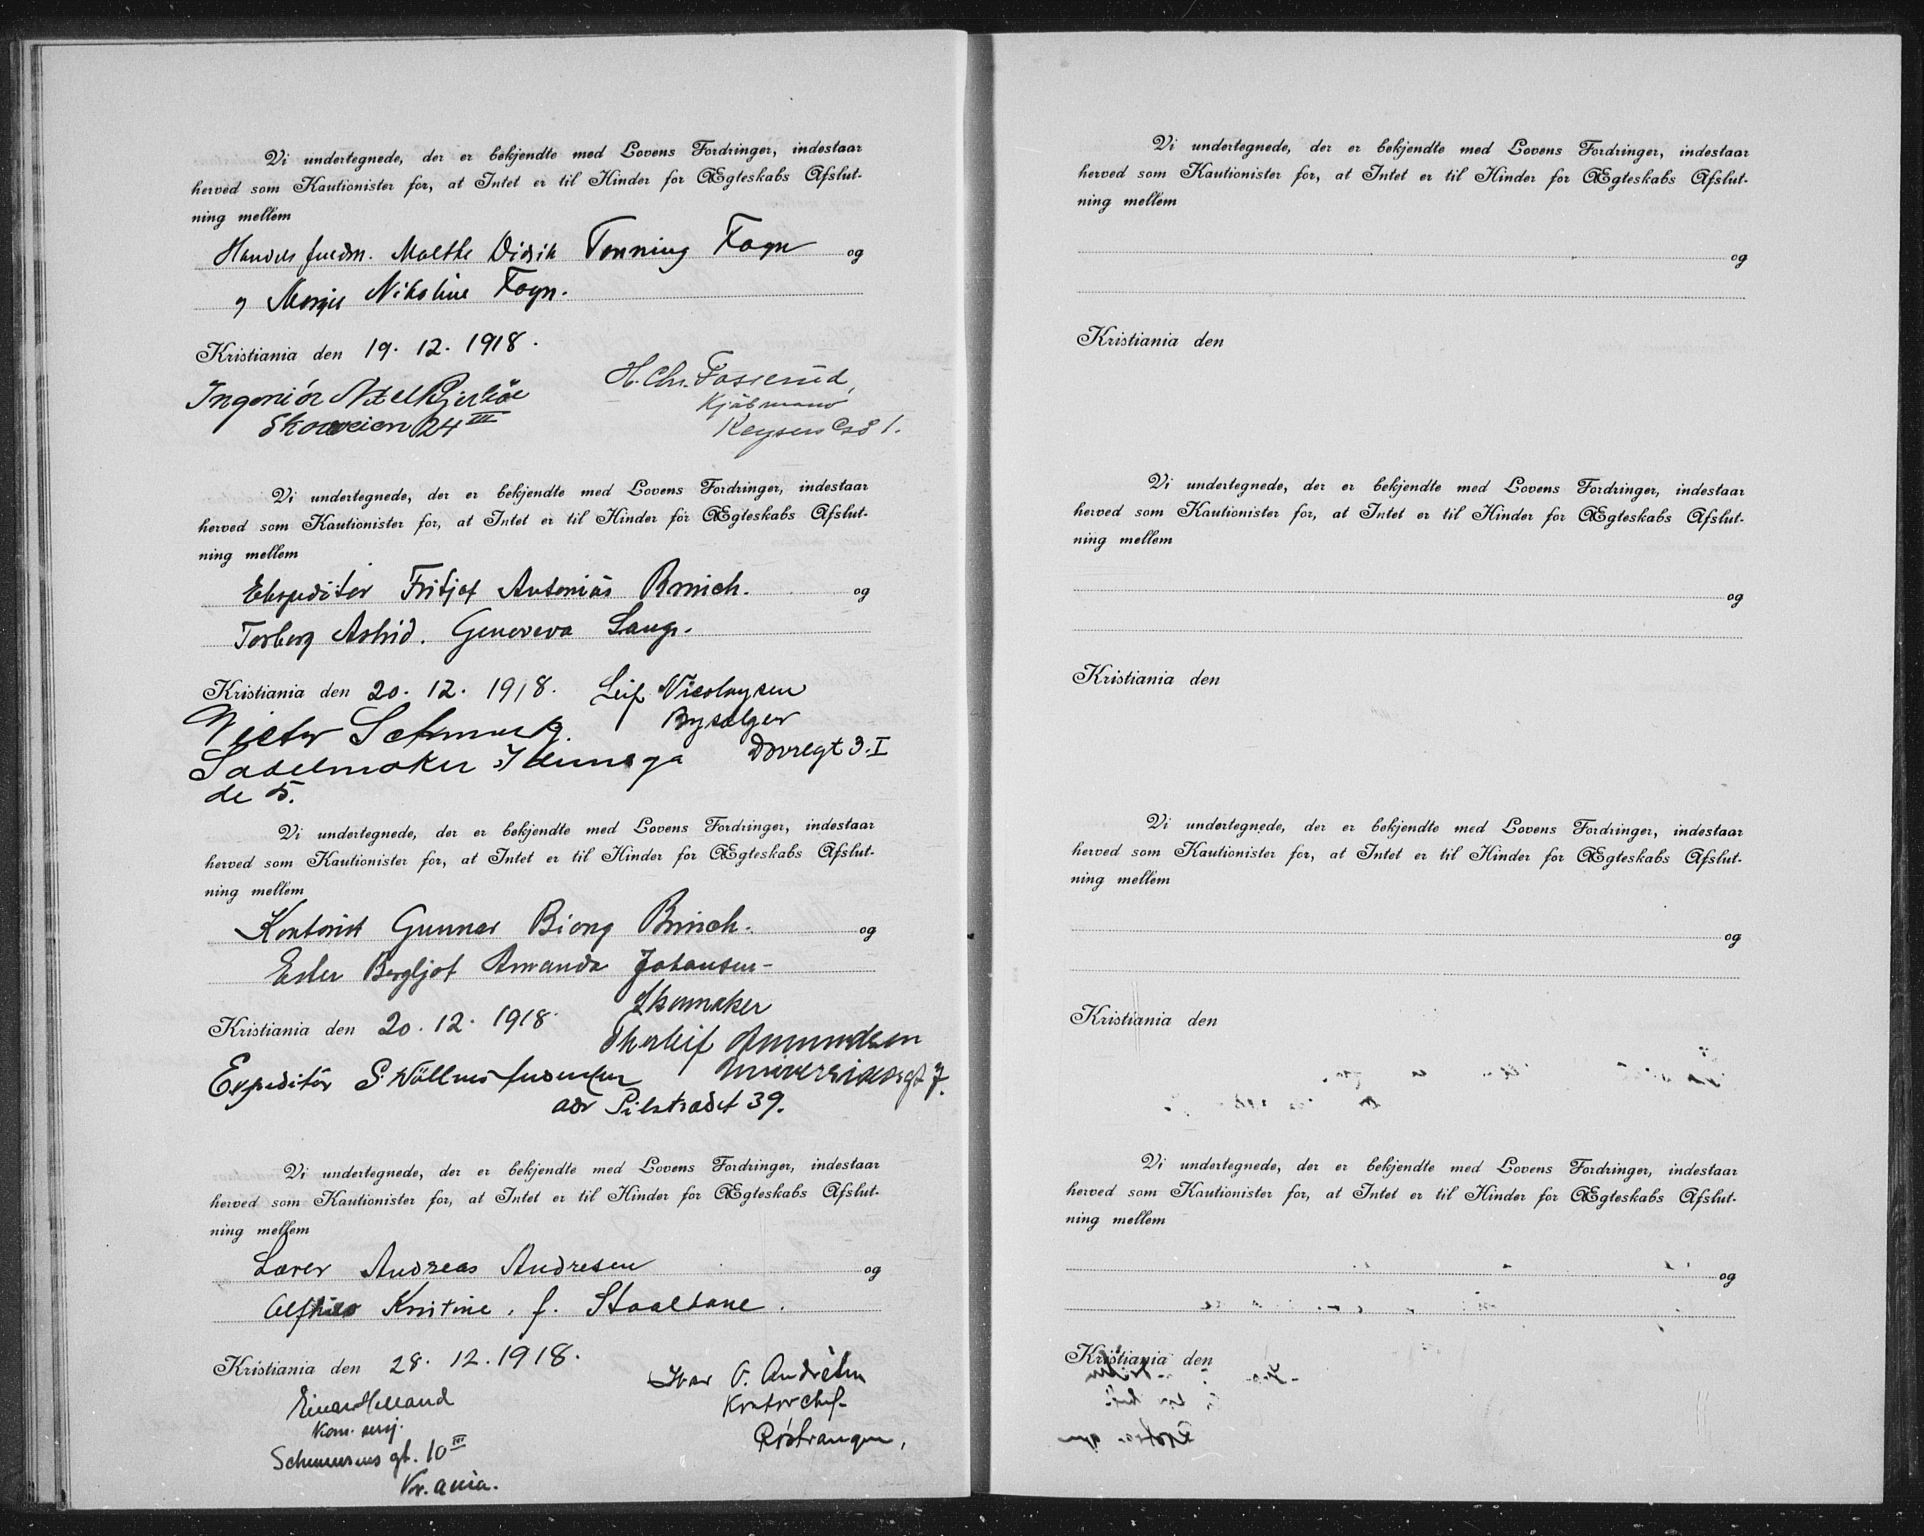 Vi undertegnede, der er bekjendte med Lovens Fordringer, indestaar
herved som Kautionister for, at Intet er til Hinder for Ægteskabs Afslut-
ning mellem
Malthe Didrik Tonning Fogn og
Nikoline Fogn.
Kristiania den 19. 12. 1918.
Ingeniør
Skovveien 24 III
H. Chr. Fosserud,
Kjøbmand
Keysers 1.
Vi undertegnede, der er bekjendte med Lovens Fordringer, indestaar
herved som Kautionister for, at Intet er til Hinder for Ægteskabs Afslut-
ning mellem
Ekspeditør Fritjof Antonius Brnich. og
Torberg Astrid. Genoveva Lang.
Kristiania den 20. 12. 1918.
Victor Schmuck.
Sadelmaker
de 5.
Leif Nicolaysen
Bysælger
Dovregt 3. I
Vi undertegnede, der er bekjendte med Lovens Fordringer, indestaar
herved som Kautionister for, at Intet er til Hinder for Ægteskabs Afslut-
ning mellem
Kontorist Gunnar Biong Brnich. og
Ester Bergljot Amanda Johansen-
Kristiania den 20. 12. 1918.
Skomaker
Thorleif Amundsen
Universitetsgt 7.
Expeditør S.
adr Pilestrædet 39.
Vi undertegnede, der er bekjendte med Lovens Fordringer, indestaar
herved som Kautionister for, at Intet er til Hinder for Ægteskabs Afslut-
ning mellem
Lærer Andreas Andresen og
Kristine. f. Staalbane.
Kristiania den 28. 12. 1918.
Einar Helland
Kom. serg.
gt. 10 III
Kr.ania.
Ivar O. Andresen
Kontorchef
Vi undertegnede, der er bekjendte med Lovens Fordringer, indestaar
herved som Kautionister for, at Intet er til Hinder for Ægteskabs Afslut-
ning mellem
og
Kristiania den
Vi undertegnede, der er bekjendte med Lovens Fordringer, indestaar
herved som Kautionister for, at Intet er til Hinder for Ægteskabs Afslut-
ning mellem
og
Kristiania den
Vi undertegnede, der er bekjendte med Lovens Fordringer, indestaar
herved som Kautionister for, at Intet er til Hinder for Ægteskabs Afslut-
ning mellem
og
Kristiania den
Vi undertegnede, der er bekjendte med Lovens Fordringer, indestaar
herved som Kautionister for, at Intet er til Hinder for Ægteskabs Afslut-
ning mellem
og
Kristiania den